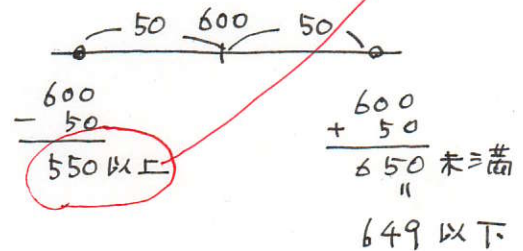 50 600 50
600
- 50
550以上
600
+ 50
650未満
"
649以下